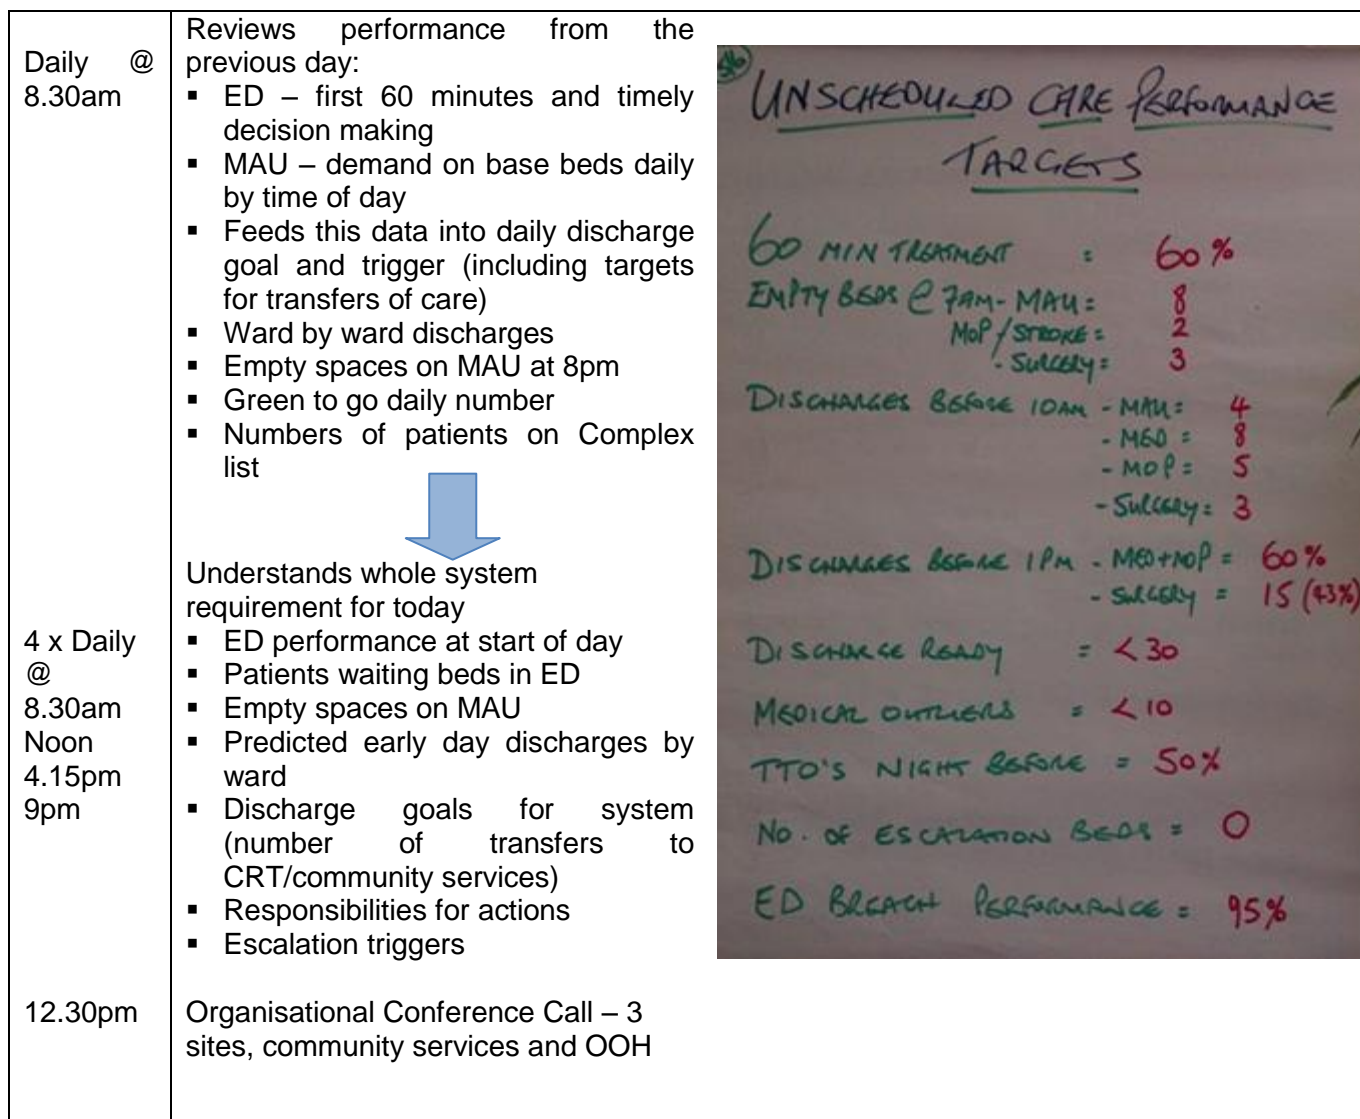 Daily @
8.30am
Reviews performance from the
previous day:
▪ ED – first 60 minutes and timely
decision making
▪ MAU – demand on base beds daily
by time of day
▪ Feeds this data into daily discharge
goal and trigger (including targets
for transfers of care)
▪ Ward by ward discharges
▪ Empty spaces on MAU at 8pm
▪ Green to go daily number
▪ Numbers of patients on Complex
list
Understands whole system
requirement for today
4 x Daily
@
8.30am
Noon
4.15pm
9pm
▪ ED performance at start of day
▪ Patients waiting beds in ED
▪ Empty spaces on MAU
▪ Predicted early day discharges by
ward
▪ Discharge goals for system
(number of transfers to
CRT/community services)
▪ Responsibilities for actions
▪ Escalation triggers
12.30pm
Organisational Conference Call – 3
sites, community services and OOH
UNSCHEDULED CARE PERFORMANCE
TARGETS
60 MIN TREATMENT : 60%
EMPTY BEDS @ 7AM - MAU = 8
MOP / STROKE = 2
- SURGERY = 3
DISCHARGES BEFORE 10AM - MAU = 4
- MED = 8
- MOP = 5
- SURGERY = 3
DISCHARGES BEFORE 1PM - MED+MOP = 60%
- SURGERY = 15 (43%)
DISCHARGE READY = <30
MEDICAL OUTLIERS = <10
TTO'S NIGHT BEFORE = 50%
NO. OF ESCALATION BEDS = 0
ED BREACH PERFORMANCE = 95%